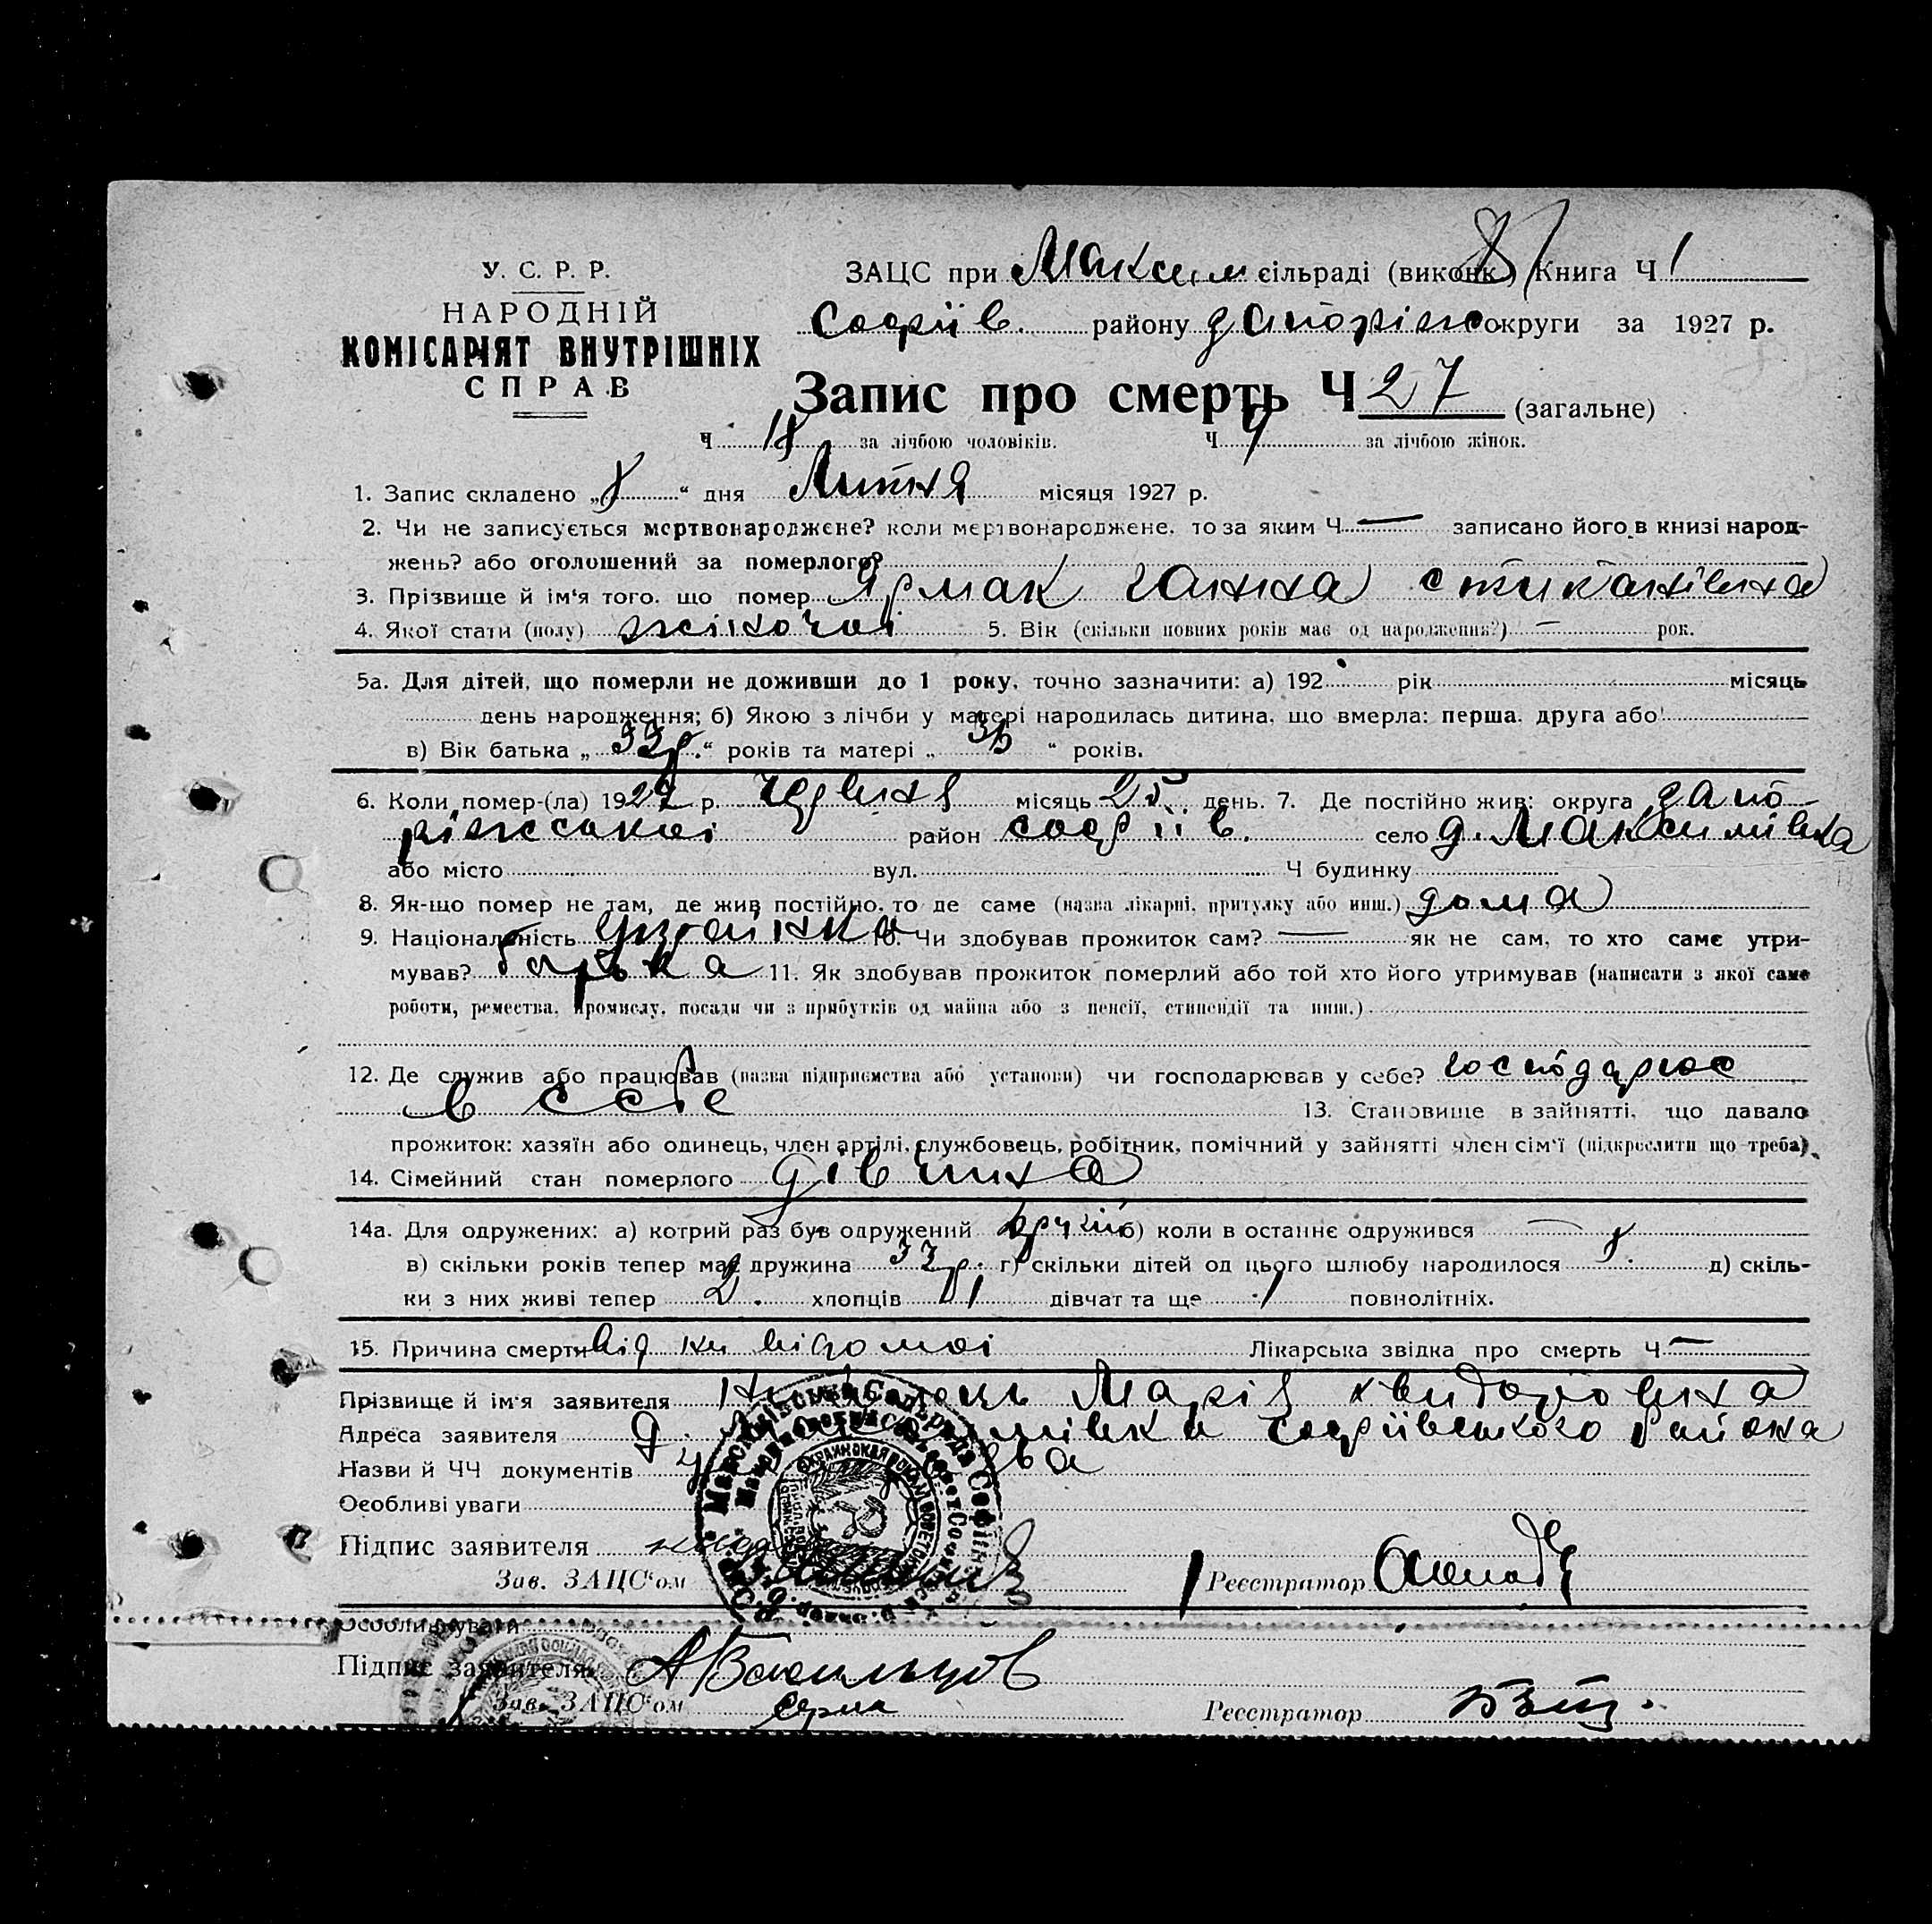 У. С. Р. Р.
НАРОДНІЙ
КОМІСАРІЯТ ВНУТРІШНІХ
СПРАВ
ЗАЦС при Максим сільраді (виконк) Книга Ч 1
Софіїв. району Запоріж округи за 1927 р.
Запис про смерть Ч 27 (загальне)
Ч 18 за лічбою чоловіків. Ч 9 за лічбою жінок.
1. Запис складено „ “ дня Липня місяця 1927 р.
2. Чи не записується мертвонароджене? коли мертвонароджене, то за яким Ч — записано його в книзі народ-
жень? або оголошений за померлого?
3. Прізвище й ім'я того, що помер Ярмак Ганна
4. Якої стати (полу) жіночої 5. Вік (скільки повних років має од народження?) — рок.
5а. Для дітей, що померли не доживши до 1 року, точно зазначити: а) 192 рік місяць
день народження; б) Якою з лічби у матері народилась дитина, що вмерла: перша, друга або
в) Вік батька „ “ років та матері „ “ років.
6. Коли помер-(ла) 1927 р. Червня місяць 25 день. 7. Де постійно жив: округа Запо-
ріжської район Софіїв. село д. Максимівка
або місто вул. Ч будинку
8. Як-що помер не там, де жив постійно, то де саме (назва лікарні, притулку або инш.) дома
9. Національність 10. Чи здобував прожиток сам? — як не сам, то хто саме утри-
мував? батька 11. Як здобував прожиток померлий або той хто його утримував (написати з якої саме
роботи, ремества, промислу, посади чи з прибутків од майна або з пенсії, стипендії та инш.)
12. Де служив або працював (назва підприємства або установи) чи господарював у себе? господарює
в себе 13. Становище в зайнятті, що давало
прожиток: хазяїн або одинець, член артілі, службовець, робітник, помічний у зайнятті член сім'ї (підкреслити що треба)
14. Сімейний стан померлого дівчина
14а. Для одружених: а) котрий раз був одружений б) коли в останнє одружився —
в) скільки років тепер має дружина г) скільки дітей од цього шлюбу народилося д) скіль-
ки з них живі тепер 2. хлопців 1 дівчат та ще повнолітніх.
15. Причина смерти від не відомої Лікарська звідка про смерть Ч —
Прізвище й ім'я заявителя Марія
Адреса заявителя д. Максимівка Софіївського району
Назви й ЧЧ документів
Особливі уваги
Підпис заявителя
Зав. ЗАЦС'ом Реєстратор
Особливі уваги
Підпис заявителя
Зав. ЗАЦС'ом Реєстратор